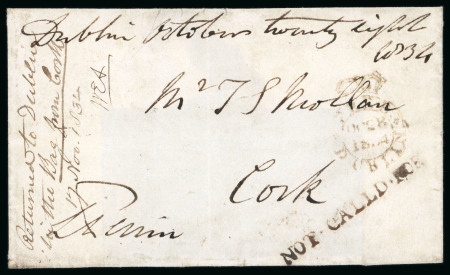 Dublin October twenty eight
1834
Mr T S Mollan
Cork
Returned to Dublin
in the Bag from Cork
17 Nov. 1834
NOT CALLD FOR